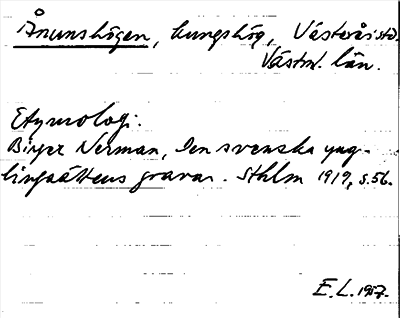 Ånunshögen, kungshög, Västerås sta.
Västm. län.
Etymologi:
Birger Nerman, Den svenska yng-
lingaättens gravar. Sthlm 1919, s. 56.
E.L. 1957.